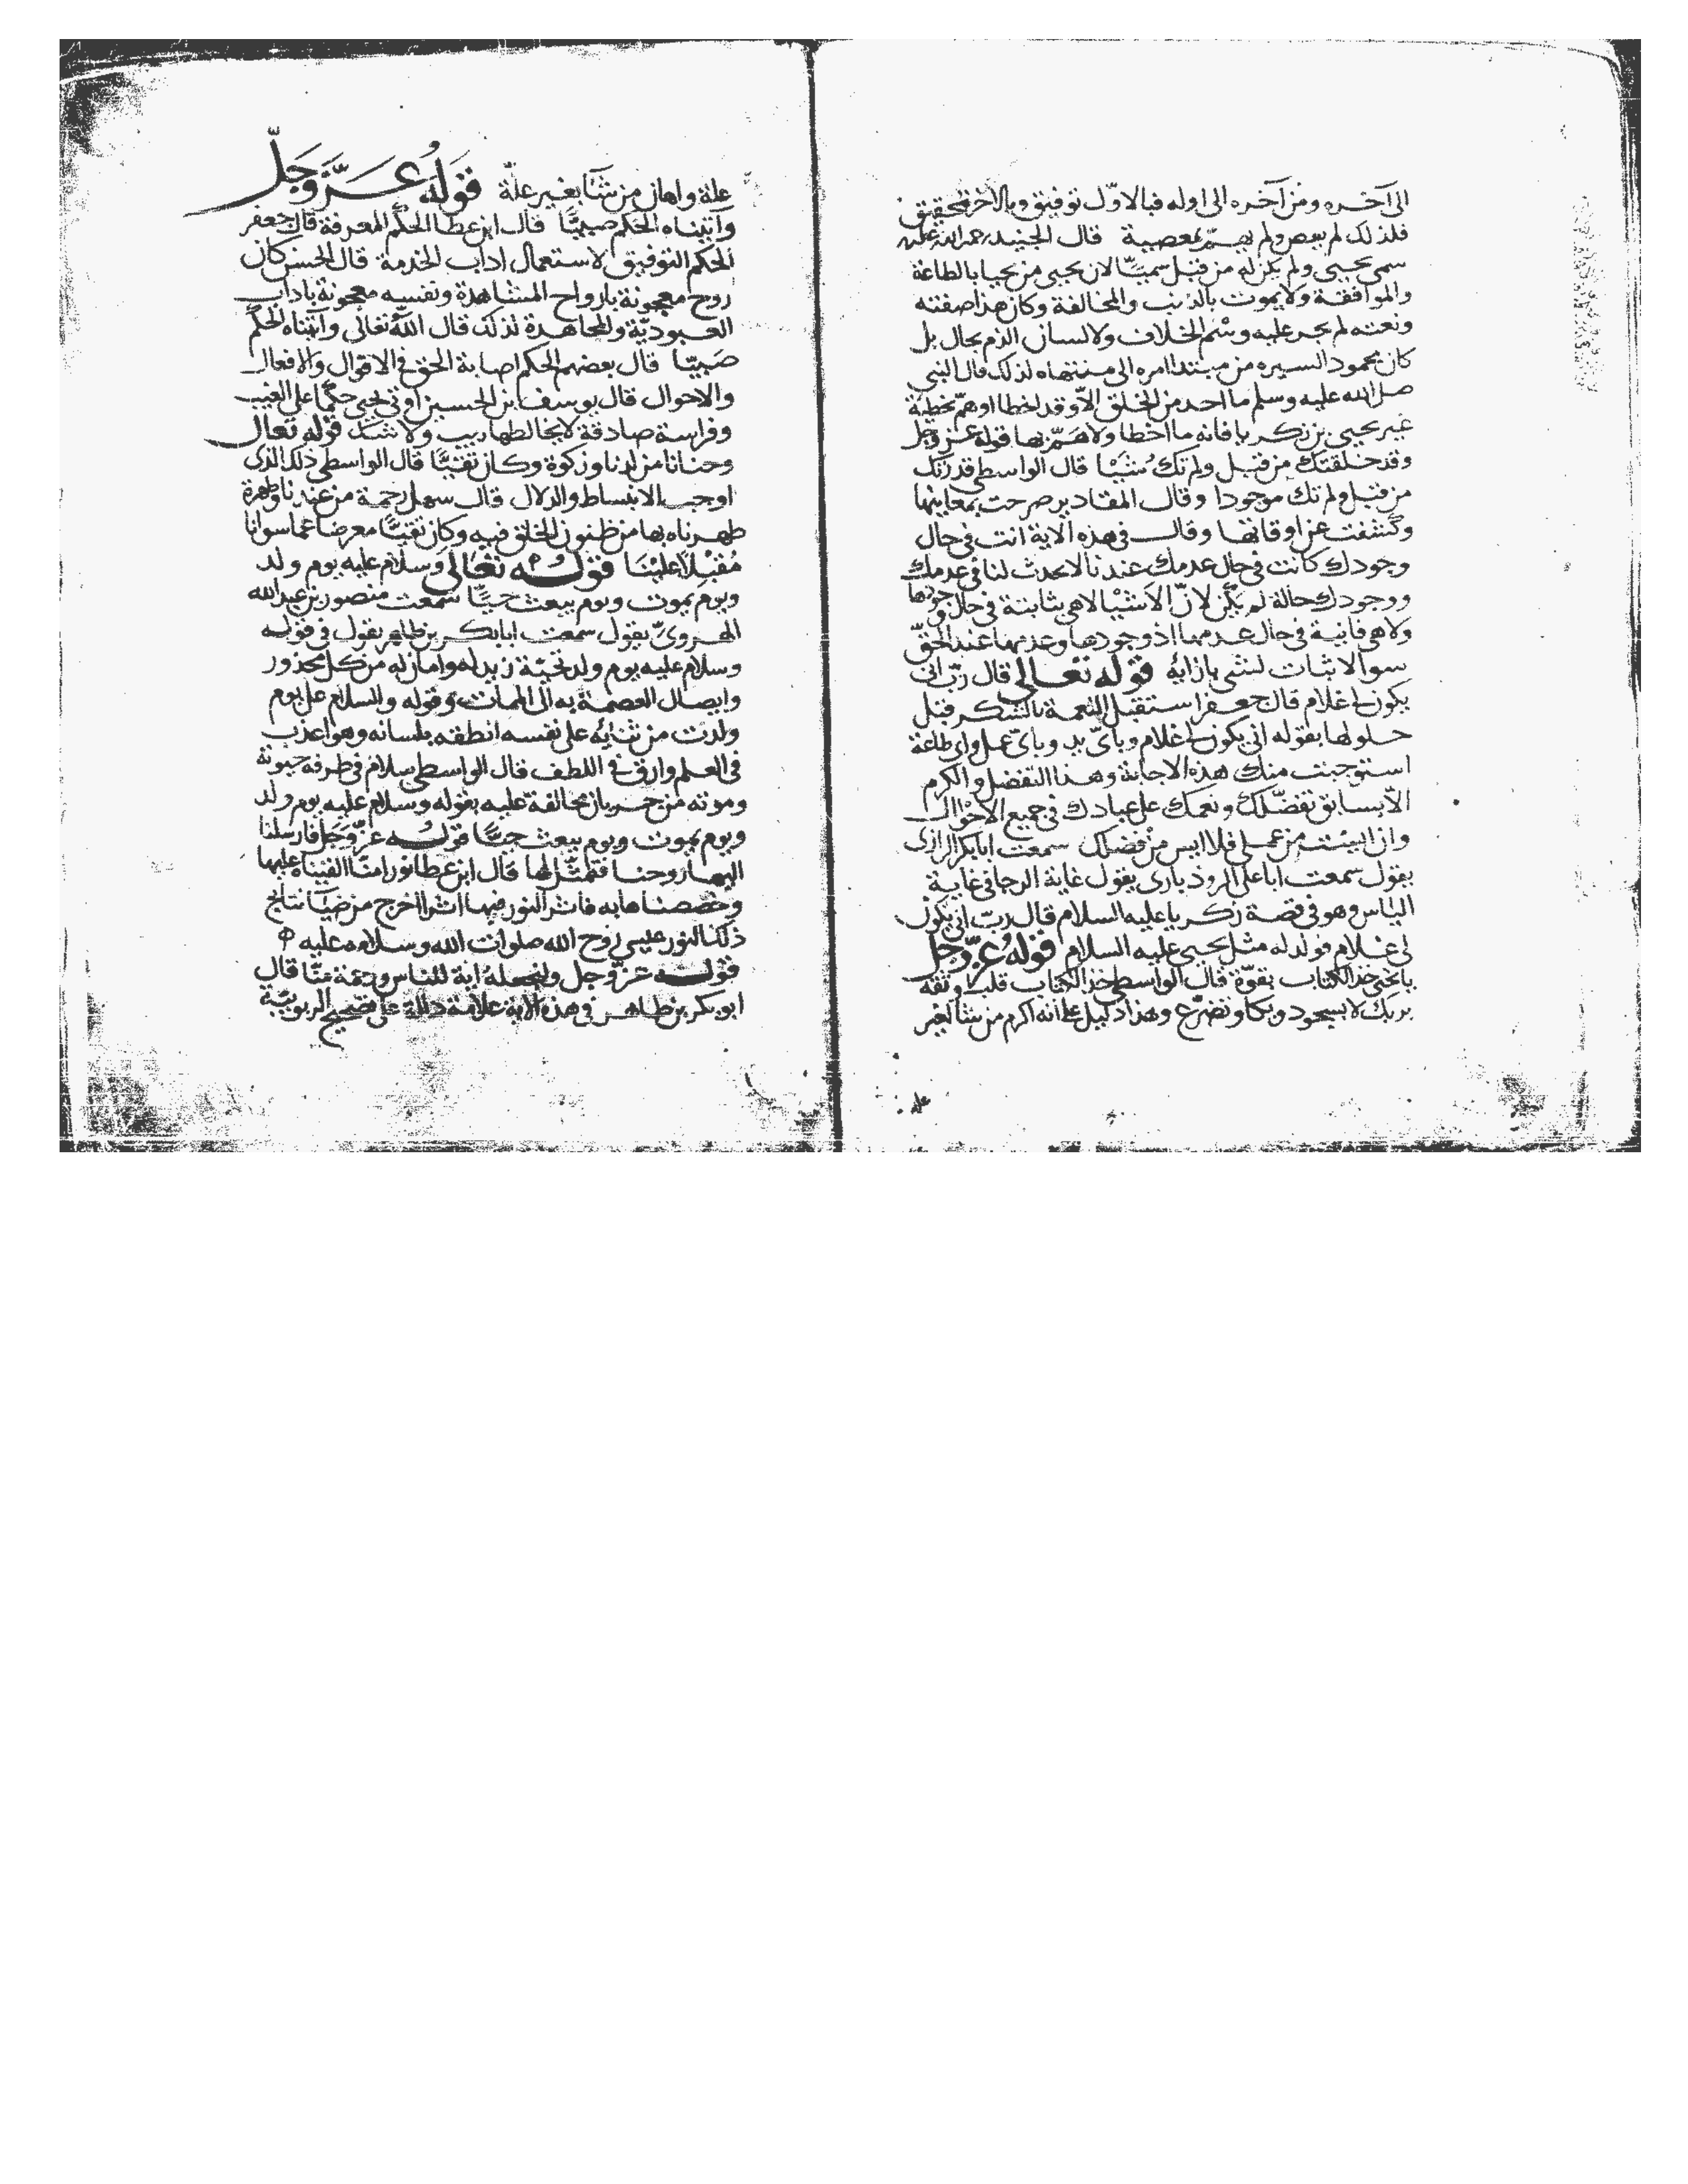 الى آخره ومن آخره الى اوله فبالاول توفيق وبالاخر تحقيق
فلذلك لم يعص ولم يهمّ بمعصية قال الجنيد رحمة الله عليه
سمى يحيى ولم يكن له من قبل سميّا لان يحيى من يحيا بالطاعة
والموافقة ولا يموت بالذنب والمخالفة وكان هذا صفته
ونعته لم يجر عليه وسم الخلاف ولا لسان الذم بحال بل
كان محمود السيره من مبتدا امره الى منتهاه لذلك قال النبي
صلى الله عليه وسلم ما احد من الخلق الاّ وقد اخطا او همّ بخطية
غير يحيى بن زكريا فانه ما اخطا ولا همّ بها قوله عز وجل
وقد خلقتك من قبل ولم تك شيْيا قال الواسطى قدرتك
من قبل ولم تك موجودا وقال المقادير صرحت بمعاينها
وكشفت عن اوقاتها وقال فى هذه الاية انت فى حال
وجودك كانت فى حال عدمك عندنا لا يحدث لنا فى عدمك
ووجودك حالة لم يكن لانّ الاشيْيا لا هى ثابتة فى حال وجودها
ولا هى فانية فى حال عدمها اذ وجودها وعدمها عند الحقّ
سوا لاثبات لشى بازايه قوله تعالى قال ربّ انى
يكون لى غلام قال جعفر استقبل النعمة بالشكر قبل
حلولها بقوله انى يكون لى غلام وباىّ يد وباىّ عمل واى طاعة
استوجبت منك هذه الاجابة وهذا التفضل والكرم
الاّ بسابق تفضّلك ونعمك على عبادك فى جميع الاحوال
وان ايئست من عملى فلا اايس من فضلك سمعت ابا بكر الرازى
يقول سمعت ابا على الروذبارى يقول غاية الرجا فى غاية
الياس وهو فى قصة زكريا عليه السلام قال ربّ انى يكون
لى غلام فولد له مثل يحيى عليه السلام قوله عزّ وجل
يا يحيى خذ الكتاب بقوّة قال الواسطى خذ الكتاب قلب وثقه
بربك لا بسجود وبكا وتضرّع وهذا دليل على انه اكرم من شا لغير
علة واهان من شآ بغير علّة قوله عزّ وجلّ
وآتيناه الحكم صبيّا قال ابن عطا الحكم المعرفة قال جعفر
الحكم التوفيق لاستعمال اداب الخدمة قال الحسن كان
روح معجونة بارواح المشاهدة ونفسه معجونة باداب
العبوديّة والمجاهدة لذلك قال الله تعالى وآتيناه الحكم
صبيّا قال بعضهم الحكم اصابة الحق فى الاقوال والافعال
والاحوال قال يوسف بن الحسين اوتى يحيى حكما على الغيب
وفراسة صادقة لا يخالطها ريب ولا شك قوله تعالى
وحنانا من لدنا وزكوة وكان تقيّا قال الواسطى ذلك الذى
اوجب الانبساط والدلال قال سهل رحمة من عندنا وطهرة
طهرناه بها من ظنون الخلق فيه وكان تقيّا معرضا عما سوانا
مُقبلا علينا قوله تعالى وسلام عليه يوم ولد
ويوم يموت ويوم يبعث حيّا سمعت منصور بن عبد الله
الهروىّ يقول سمعت ابا بكر بن طاهر يقول فى قوله
وسلام عليه يوم ولد تحيّة زيد له وامان له من كل محذور
وايصال العصمة به الى الممات وقوله والسلام على يوم
ولدت من ثنايه على نفسه انطقه بلسانه وهو اعذب
فى العلم وارق فى اللطف قال الواسطى سلام فى طرفه حيوتة
وموته من جريان مخالفة عليه بقوله وسلام عليه يوم ولد
ويوم يموت ويوم يبعث حيّا قوله عزّ وجل فارسلنا
اليها روحنا فتمثّل لها قال ابن عطا نورا منّا القيناه عليها
وخصصناها به فاثر النور فيها اثرا اخرج من ضيآ نتايج
ذلك النور عيسى روح الله صلوات الله وسلامه عليه
قوله عزّ وجل ولنجعله اية للناس ورحمة منّا قال
ابو بكر بن طاهر فى هذه الاية علامة دالة على تصحيح الربوبيّة